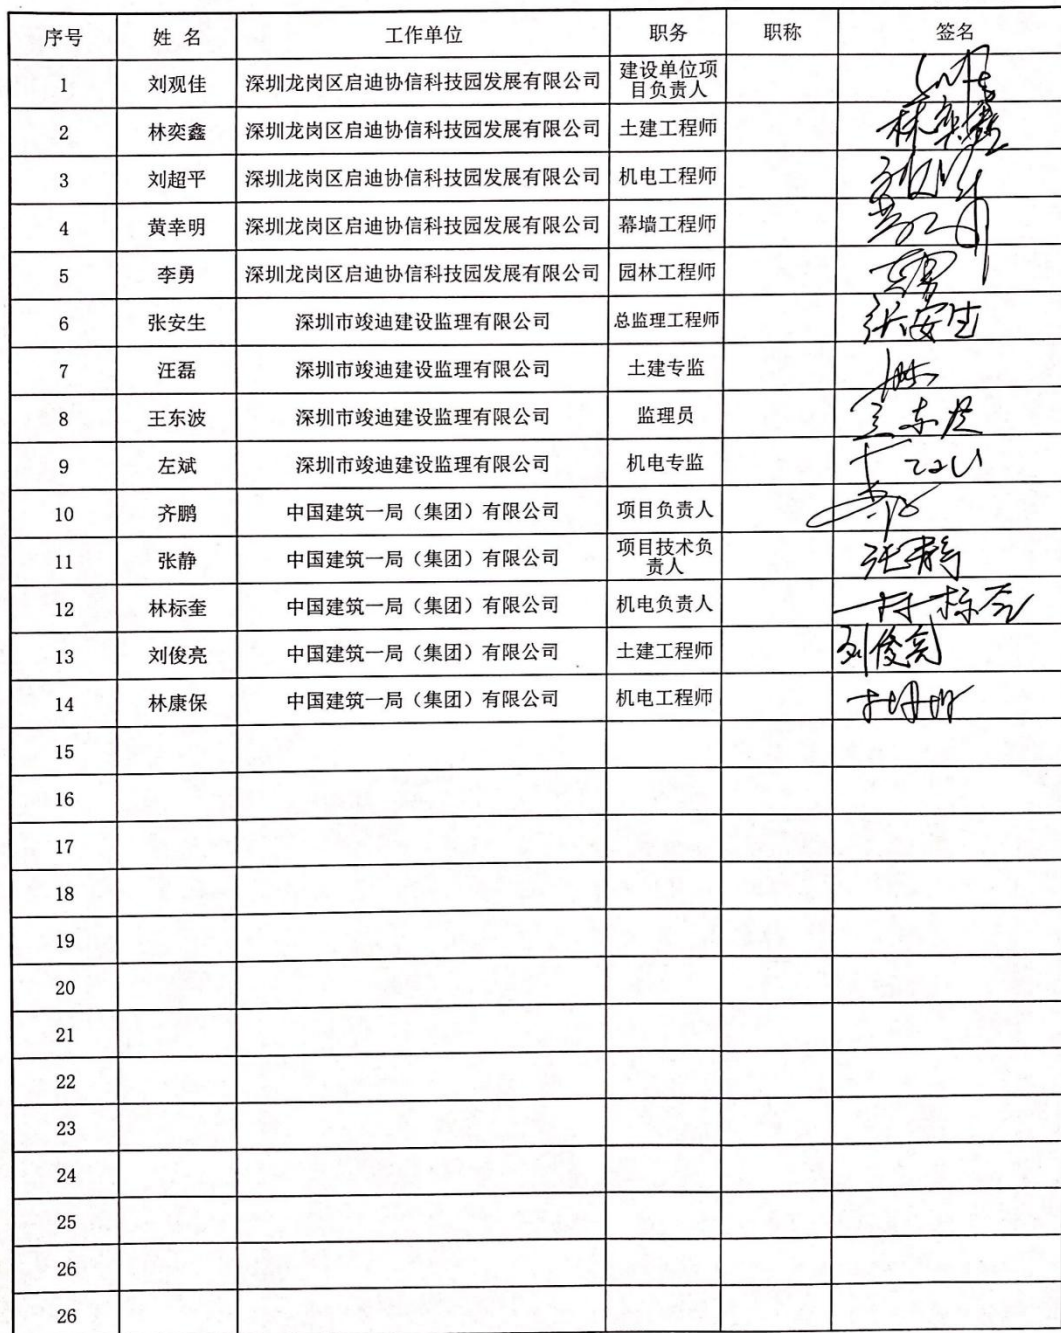 序号 姓 名 工作单位 职务 职称 签名
1 刘观佳 深圳龙岗区启迪协信科技园发展有限公司 建设单位项
目负责人
2 林奕鑫 深圳龙岗区启迪协信科技园发展有限公司 土建工程师 林奕鑫
3 刘超平 深圳龙岗区启迪协信科技园发展有限公司 机电工程师
4 黄幸明 深圳龙岗区启迪协信科技园发展有限公司 幕墙工程师
5 李勇 深圳龙岗区启迪协信科技园发展有限公司 园林工程师
6 张安生 深圳市竣迪建设监理有限公司 总监理工程师 张安生
7 汪磊 深圳市竣迪建设监理有限公司 土建专监
8 王东波 深圳市竣迪建设监理有限公司 监理员 王东波
9 左斌 深圳市竣迪建设监理有限公司 机电专监
10 齐鹏 中国建筑一局（集团）有限公司 项目负责人
11 张静 中国建筑一局（集团）有限公司 项目技术负
责人 张静
12 林标奎 中国建筑一局（集团）有限公司 机电负责人 林标奎
13 刘俊亮 中国建筑一局（集团）有限公司 土建工程师 刘俊亮
14 林康保 中国建筑一局（集团）有限公司 机电工程师
15
16
17
18
19
20
21
22
23
24
25
26
26